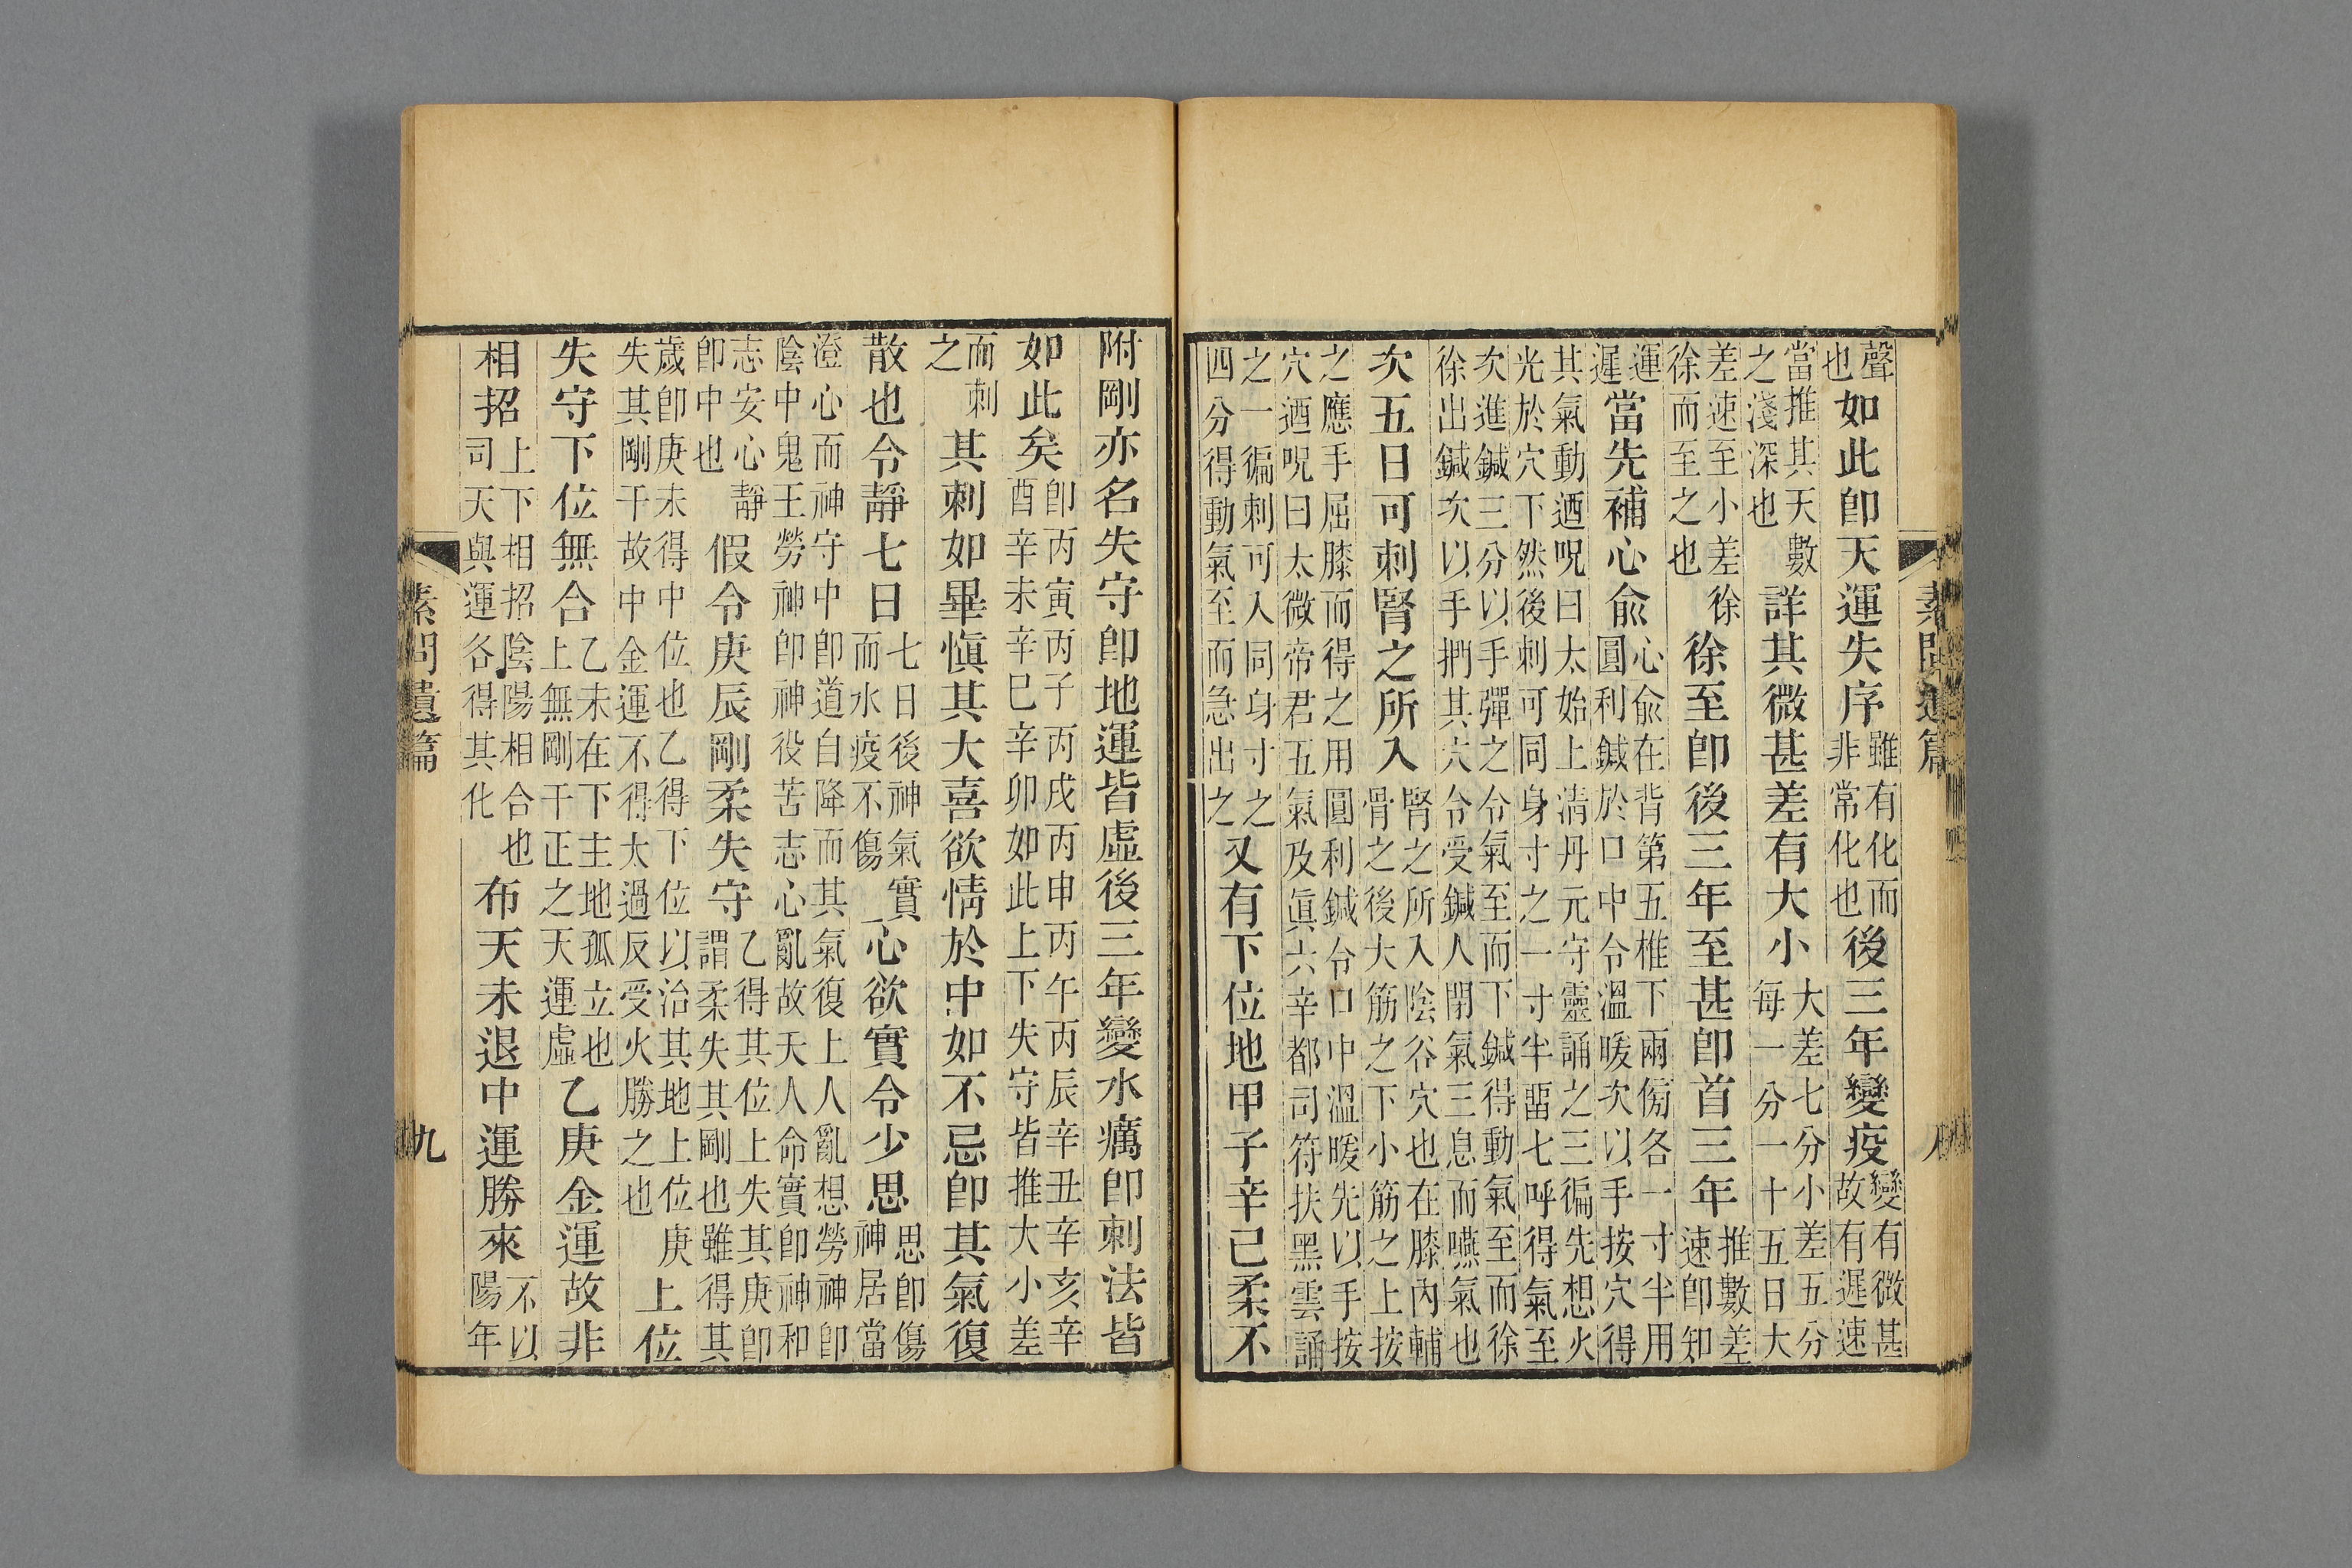 素問遺篇 八
聲也如此卽天運失序雖有化而非常化也後三年變疫變有微甚故有遲速
當推其天數之淺深也詳其微甚差有大小大差七分小差五分每一分一十五日大
差速至小差徐徐而至之也徐至卽後三年至甚卽首三年推數差速卽知
運遲當先補心俞心俞在背第五椎下兩傍各一寸半用圓利鍼於口中令溫暖次以手按穴得
其氣動迺呪曰太始上清丹元守靈誦之三徧先想火光於穴下然後刺可同身寸之一寸半畱七呼得氣至
次進鍼三分以手彈之令氣至而下鍼得動氣至而徐徐出鍼次以手捫其穴令受鍼人閉氣三息而嚥氣也
次五日可刺腎之所入腎之所入陰谷穴也在膝內輔骨之後大筋之下小筋之上按
之應手屈膝而得之用圓利鍼令口中溫暖先以手按穴迺呪曰太微帝君五氣及眞六辛都司符扶黑雲誦
之一徧刺可入同身寸之四分得動氣至而急出之又有下位地甲子辛已柔不
附剛亦名失守卽地運皆虛後三年變水癘卽刺法皆
如此矣卽丙寅丙子丙戌丙申丙午丙辰辛丑辛亥辛酉辛未辛巳辛卯如此上下失守皆推大小差
而刺之其刺如畢愼其大喜欲情於中如不忌卽其氣復
散也令靜七日七日後神氣實而水疫不傷心欲實令少思思卽傷神居當
澄心而神守中卽道自降而其氣復上人亂想勞神卽陰中鬼王勞神卽神役苦志心亂故天人命實卽神和
志安心靜卽中也假令庚辰剛柔失守乙得其位上失其庚卽謂柔失其剛也雖得其
歲卽庚未得中位也乙得下位以治其地上位庚失其剛干故中金運不得太過反受火勝之也上位
失守下位無合乙未在下主地孤立也上無剛干正之天運虛乙庚金運故非
相招上下相招陰陽相合也司天與運各得其化布天未退中運勝來不以陽年
素問遺篇 九